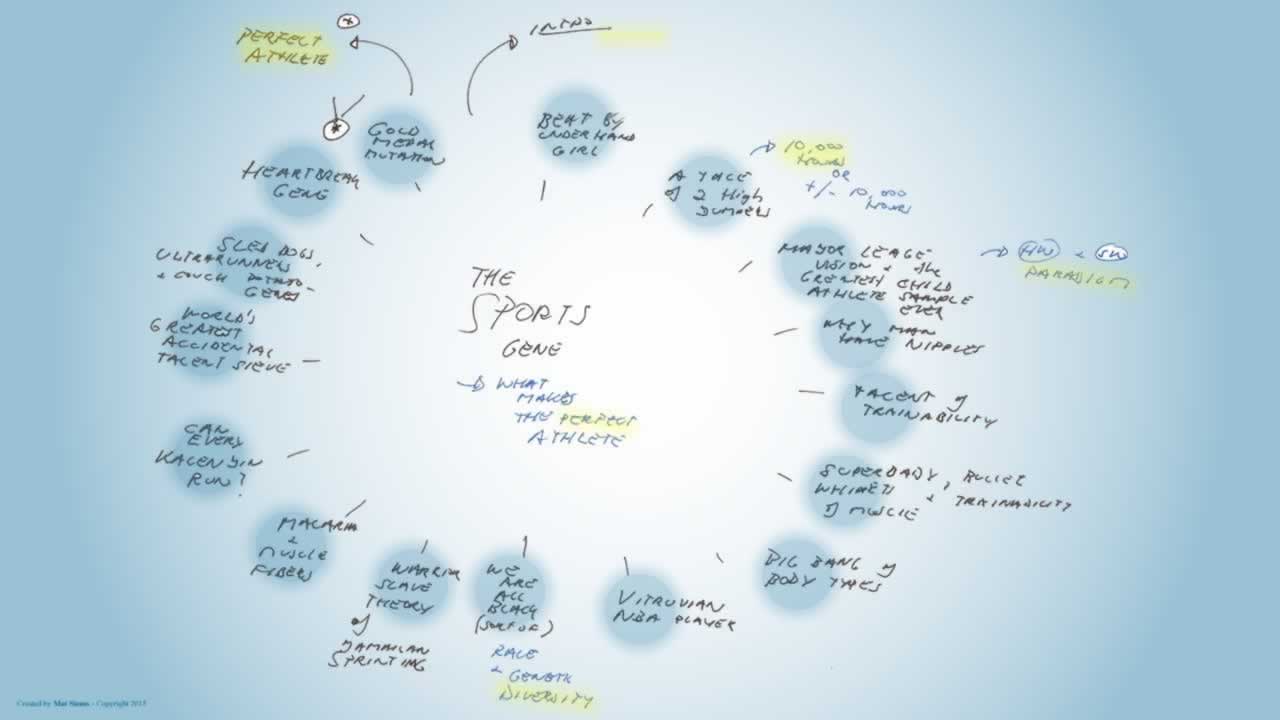 PERFECT
ATHLETE
INTRO
THE
SPORTS
GENE
WHAT
MAKES
THE PERFECT
ATHLETE
BEAT BY
UNDERHAND
GIRL
A TALE
of 2 High
JUMPERS
10,000
HOURS
OR
+/- 10,000
HOURS
MAYOR LEAGE
VISION & the
GREATEST CHILD
ATHLETE SAMPLE
EVER
HW & SW
PARADIGM
WHY MAN
HAVE NIPPLES
TALENT of
TRAINABILITY
SUPERBABY, BULLET
WHIPPETS & TRAINABILITY
of MUSCLE
BIG BANG of
BODY TYPES
VITRUVIAN
NBA PLAYER
WE
ARE
ALL
BLACK
(SORT OF)
RACE
& GENETIC
DIVERSITY
WARRIOR
SLAVE
THEORY
of
JAMAICAN
SPRINTING
MALARIA
&
MUSCLE
FIBERS
CAN
EVERY
KALENJIN
RUN?
WORLD'S
GREATEST
ACCIDENTAL
TALENT SIEVE
SLED DOGS,
ULTRARUNNERS,
& COUCH POTATO
GENES
HEARTBREAK
GENE
GOLD
MEDAL
MUTATION
Created by Mat Simms - Copyright 2015